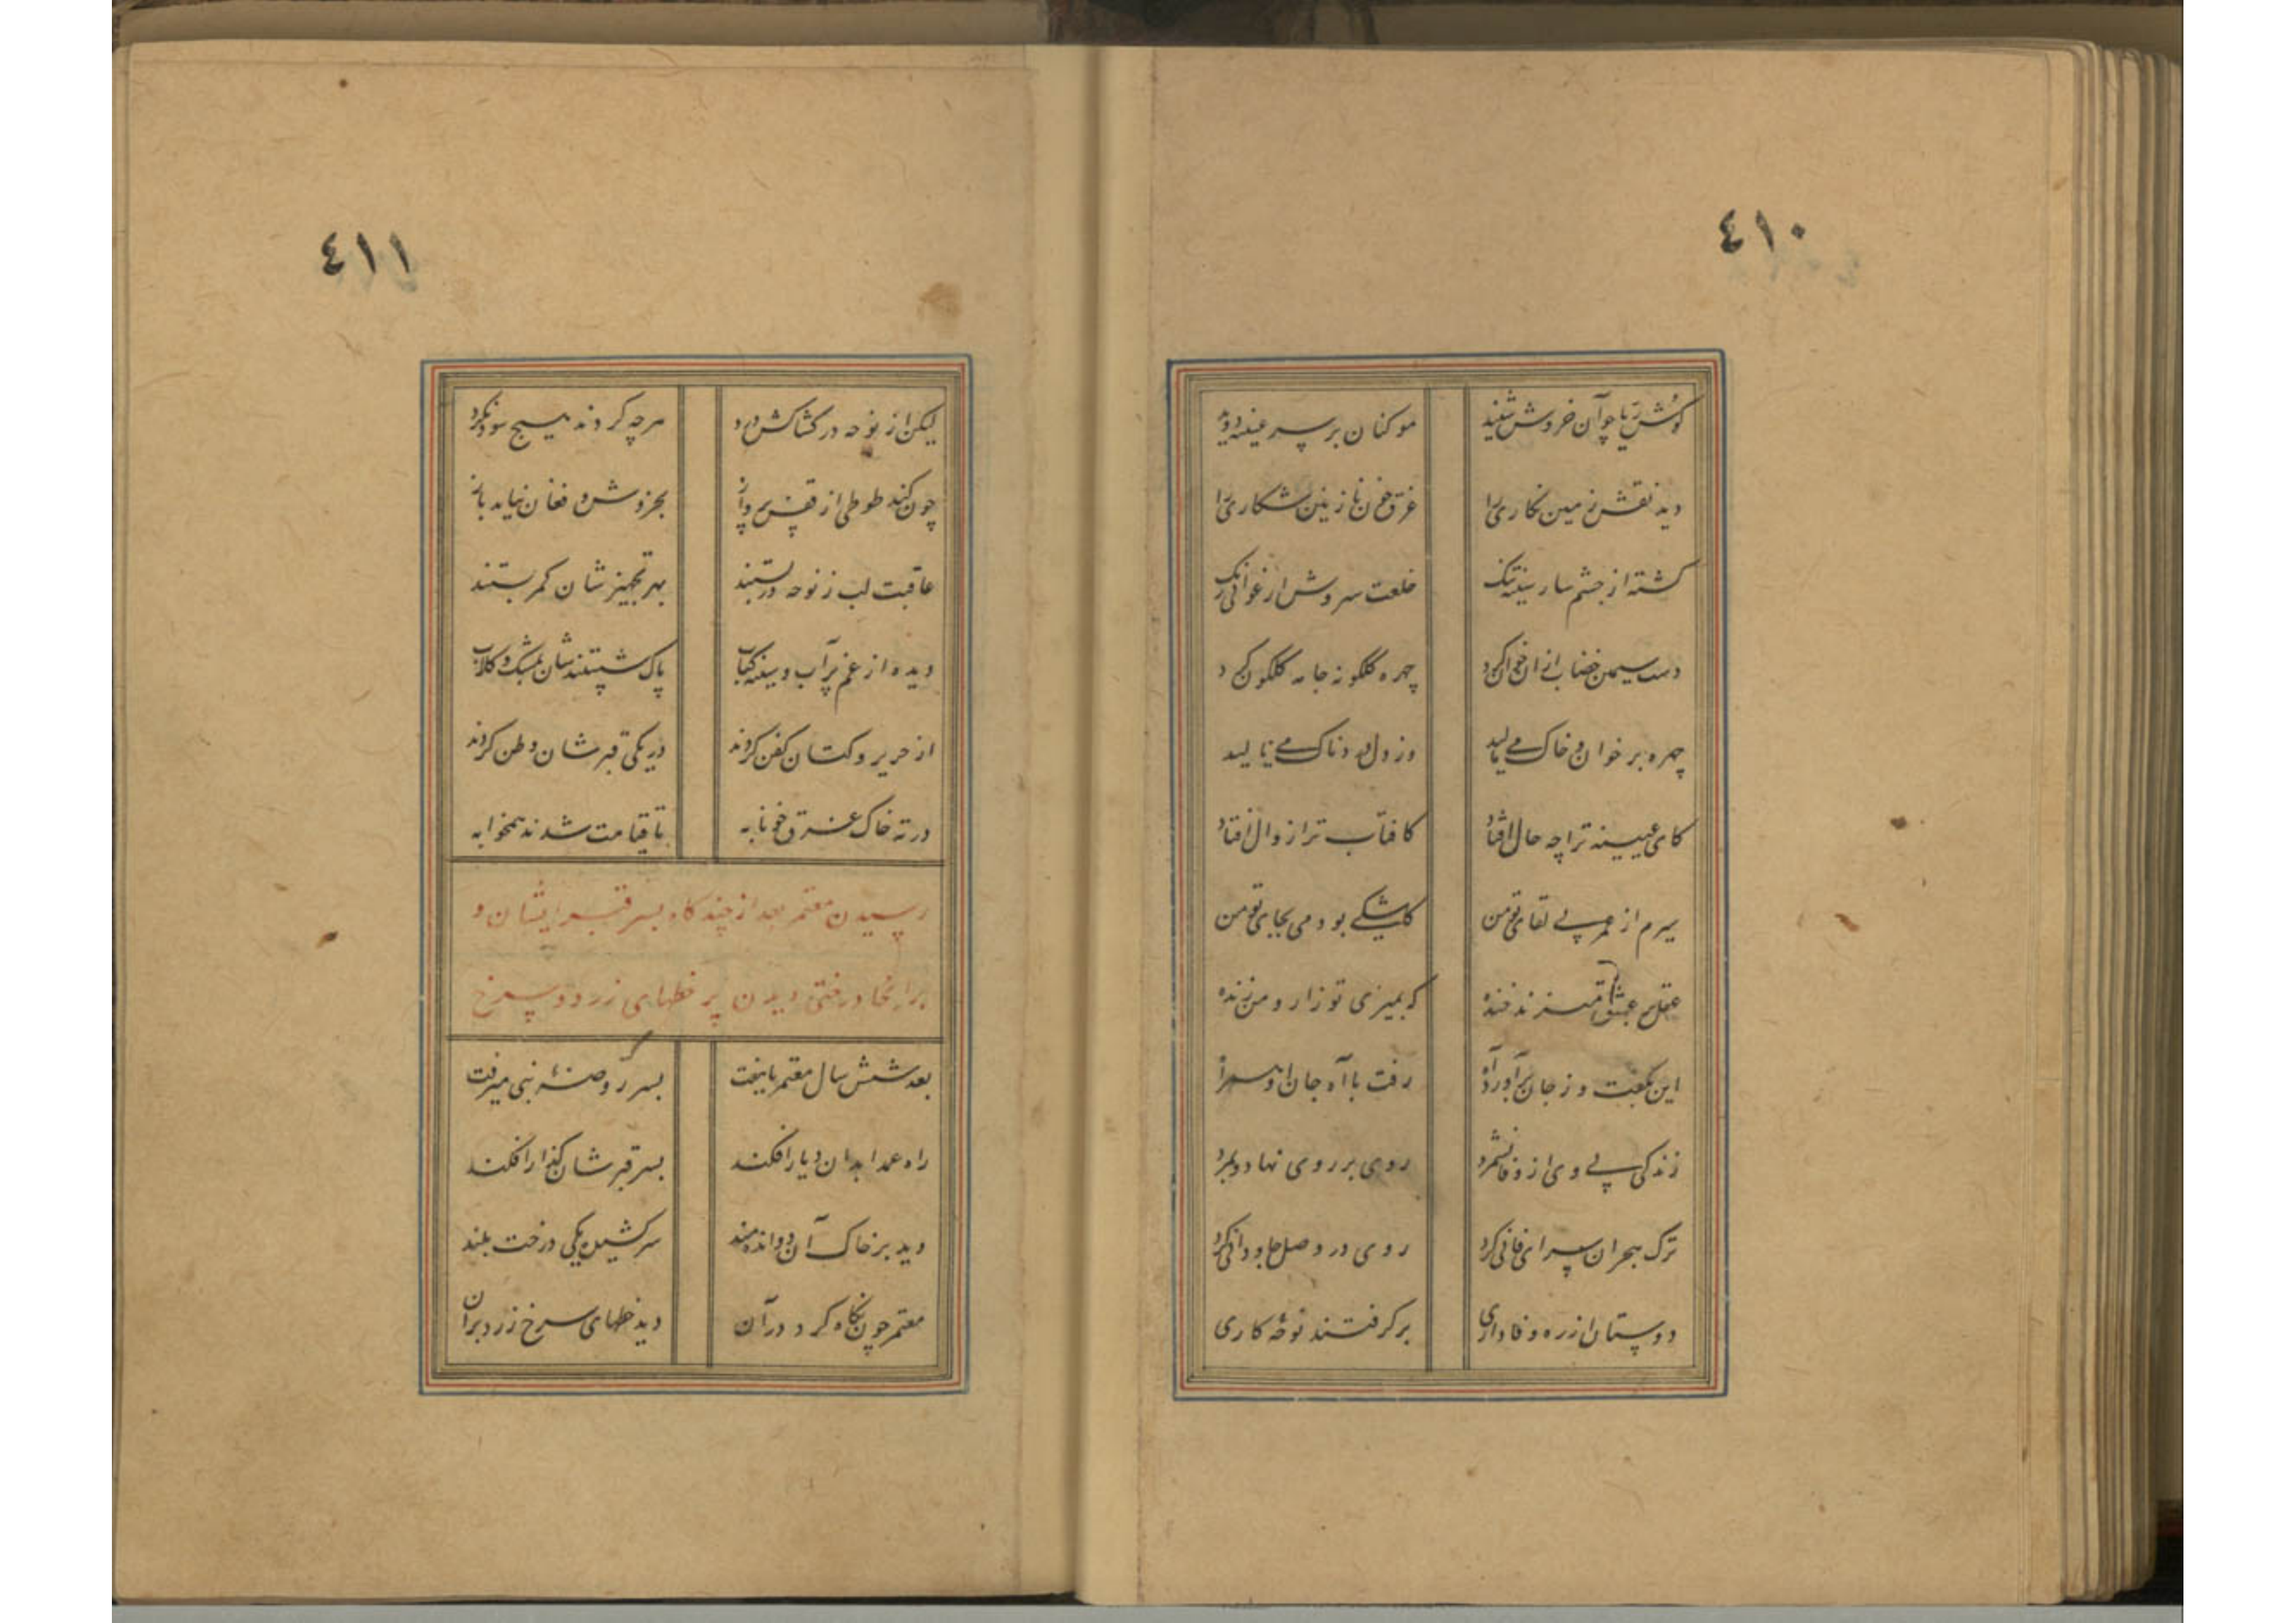 ٤١٠
گوش ریا چو آن خروش شنید
موکنان بر سر عیینه دوید
دید نقش زمین نکاری را
غرق خون نازنین شکاری را
کشته از چشم سار سینه تنک
خلعت سروش ارغوانی رنک
دست سیمین خضاب ازان خون کرد
چهره کلکونه جامه کلکون کرد
چهره بر خوان و خاک می مالید
وز دل دردناک می نالید
کای عیینه ترا چه حال افتاد
کافتاب ترا زوال افتاد
سیرم از عمر بی لقای تو من
کاشکی بودمی بجای تو من
عقل بر عشق من زند خنده
که بمیری تو زار و من زنده
این بگفت و ز جان برآورد آه
رفت با آه جان او همراه
زندکی بی وی از وفا نشمرد
روی بر روی نهاد و بمرد
ترک هجران سرای فانی کرد
روی در وصل جاودانی کرد
دوستان از ره وفاداری
برکرفتند نوحه کاری
٤١١
لیکن از نوحه در کشاکش درد
هرچه کردند هیچ سود نکرد
چون کند طوطی از قفس پرواز
بخروش و فغان نیاید باز
عاقبت لب ز نوحه در بستند
بهر تجهیز شان کمر بستند
دیده از غم پر آب و سینه کباب
پاک شستندشان بمشک و کلاب
از حریر و کتان کفن کردند
در یکی قبر شان وطن کردند
در ته خاک غرق خونابه
تا قیامت شدند همخوابه
رسیدن معتمر بعد از چند کاه بسر قبر ایشان و
بر انجا درختی دیدن پر خطهای زرد و سرخ
بعد شش سال معتمر یا هفت
بسر روضهٔ نبی میرفت
راه عمدا بدان دیار افکند
بسر قبر شان کذار افکند
دید بر خاک آن دو اندهمند
سر کشیده یکی درخت بلند
معتمر چون نکاه کرد در آن
دید خطهای سرخ زرد بران